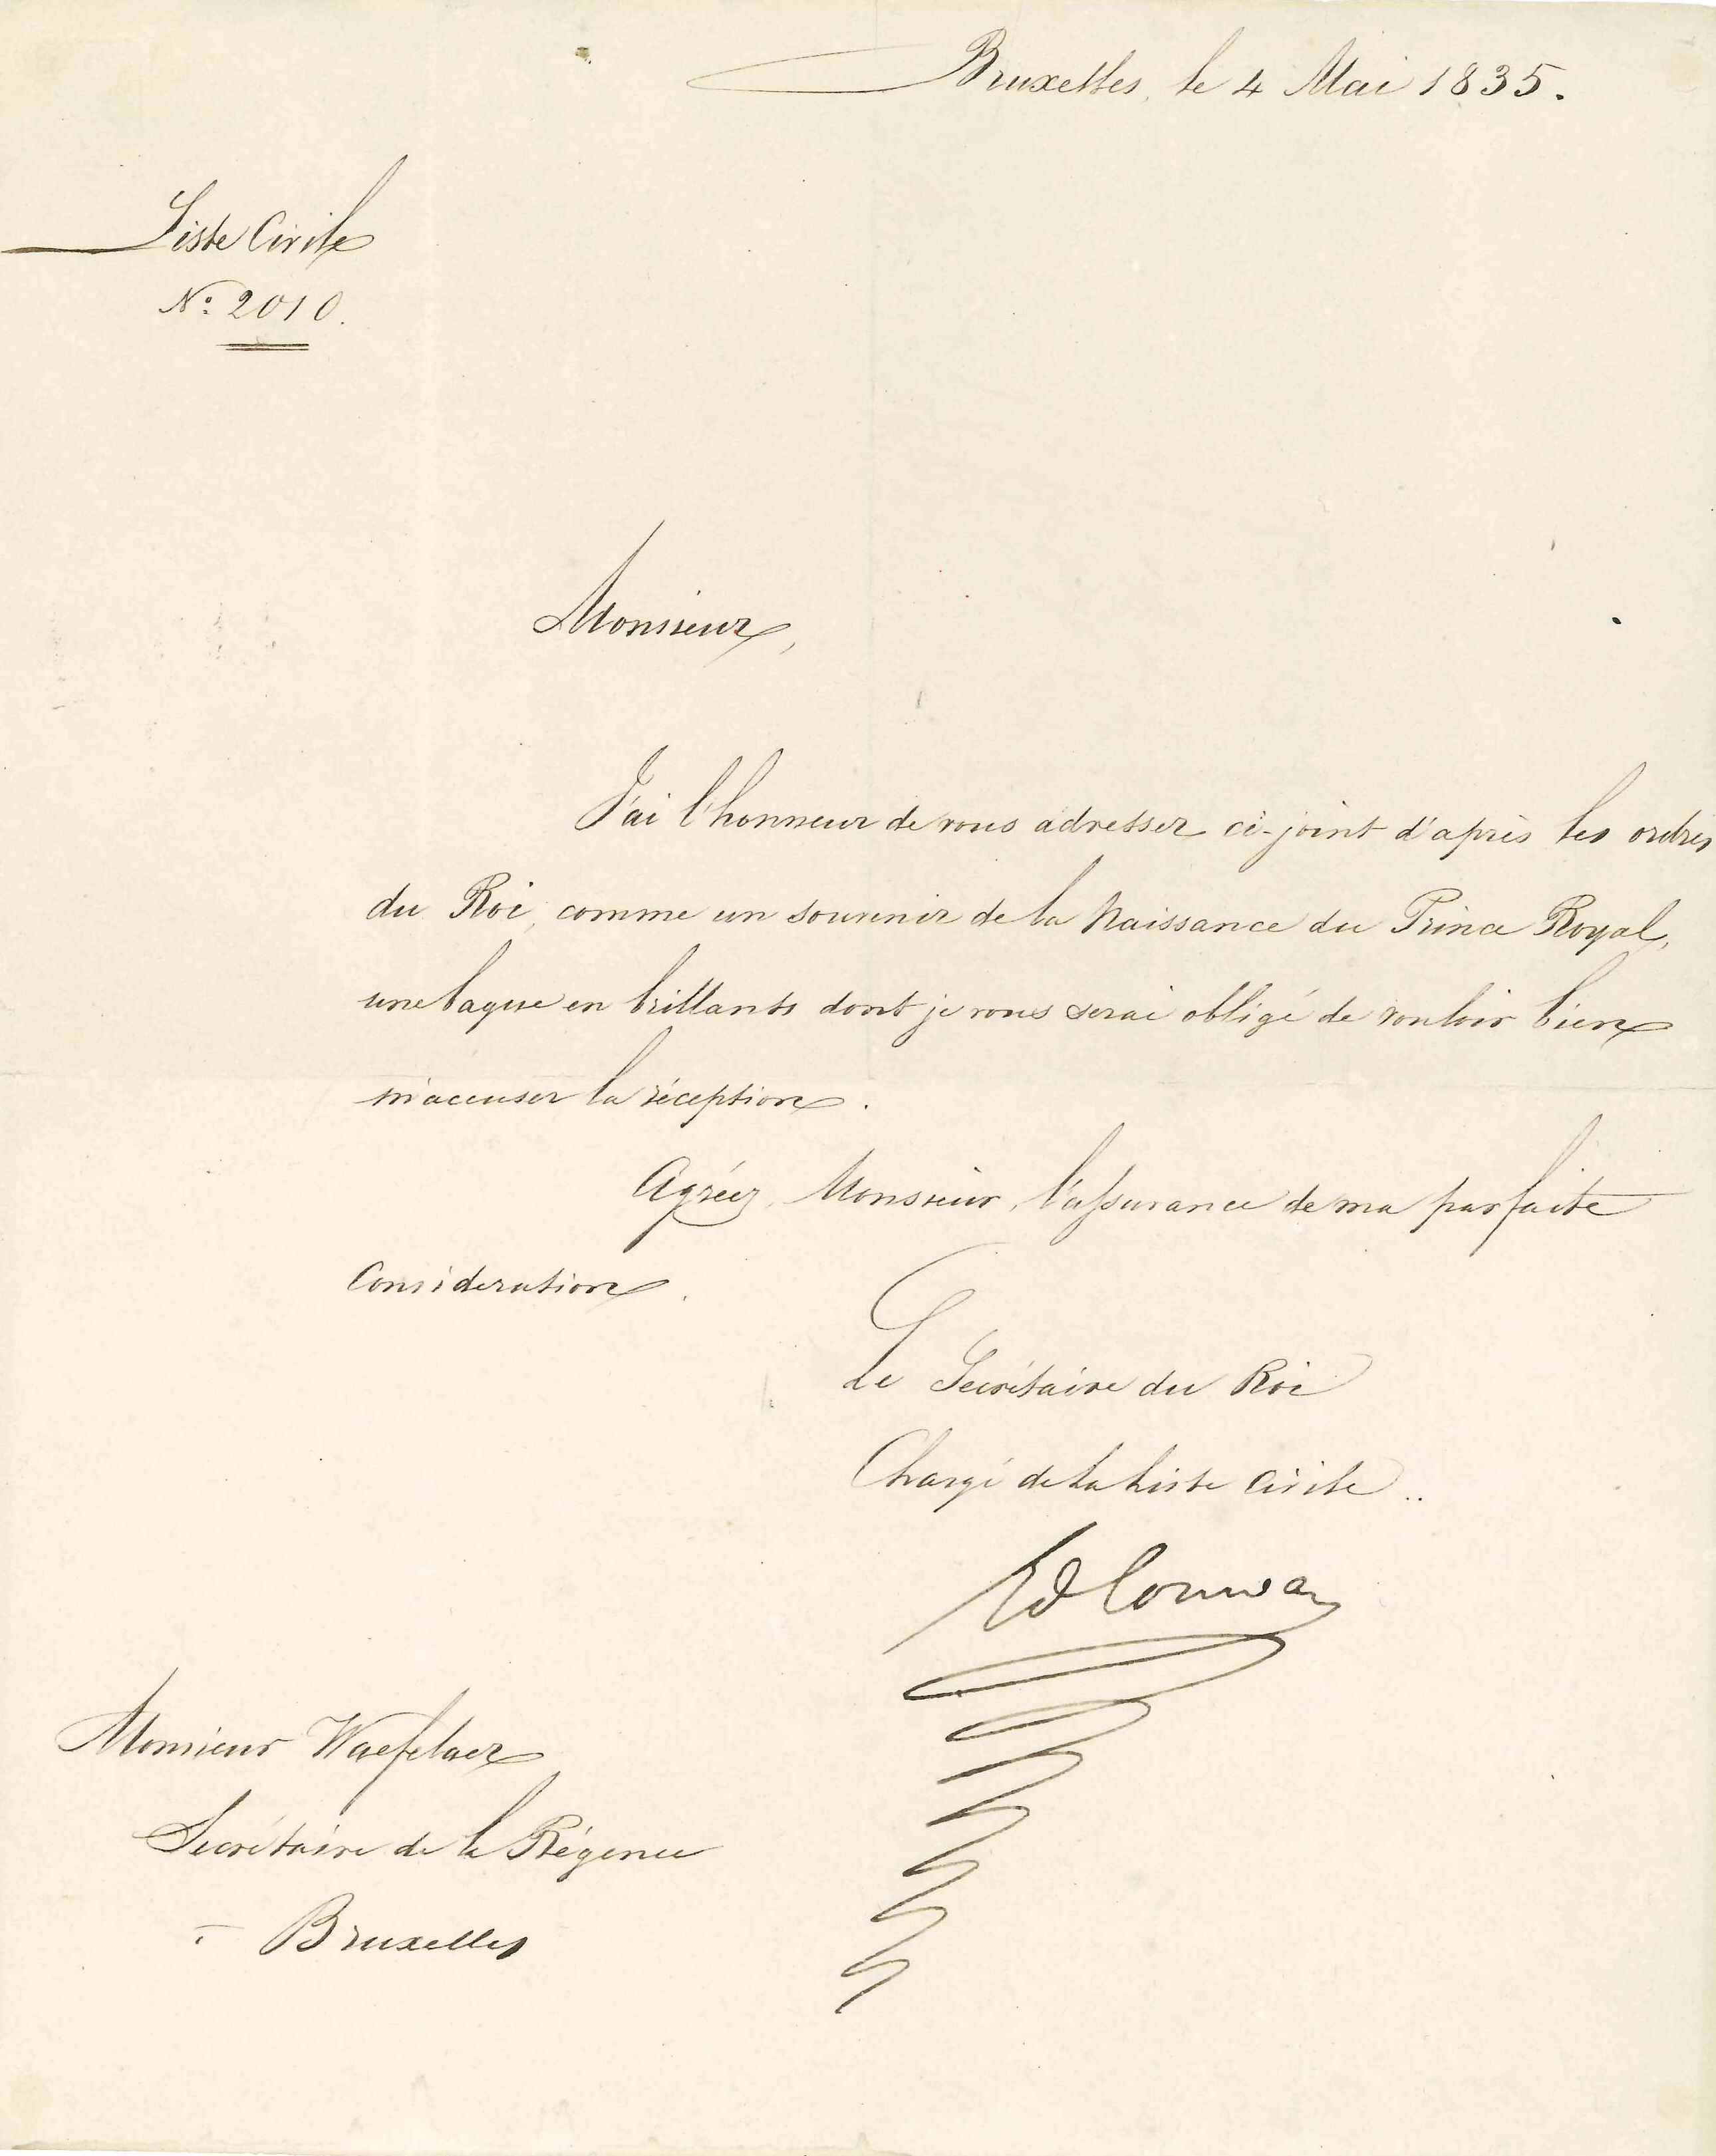 Bruxelles, le 4 Mai 1835.
Liste Civile
N.º 2010.
Monsieur,
J'ai l'honneur de vous adresser ci-joint d'après les ordres
du Roi, comme un souvenir de la Naissance du Prince Royal,
une bague en brillants dont je vous serai obligé de vouloir bien
m'accuser la réception.
Agréez, Monsieur, l'assurance de ma parfaite
Consideration.
Le Secrétaire du Roi
Chargé de la Liste Civile
Ed Conway
Monsieur Waefelaer
Secrétaire de la Régence
à Bruxelles